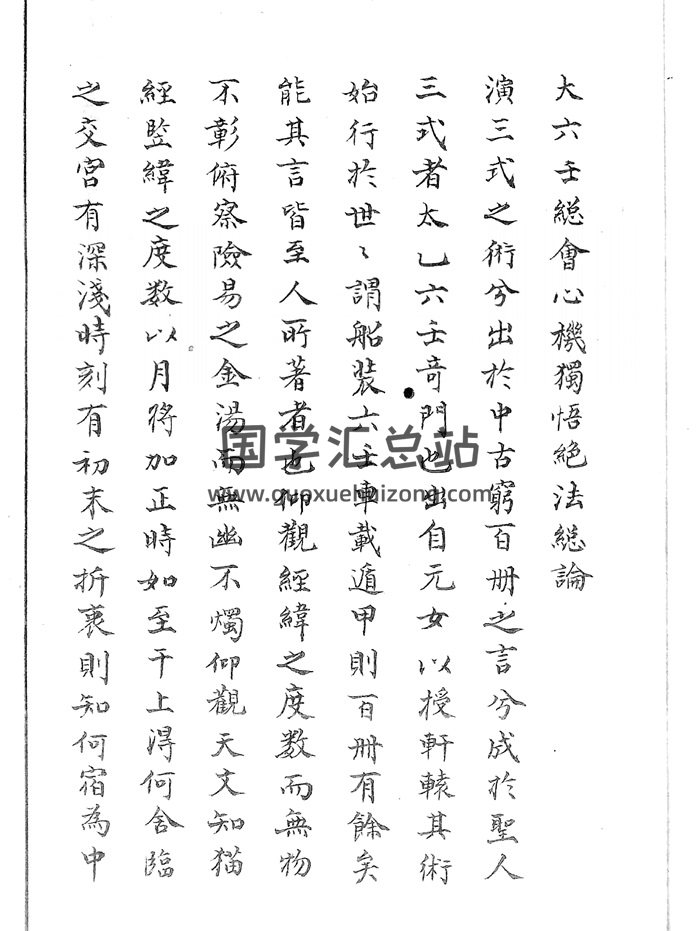 大六壬總會心機獨悟絕法總論
演三式之術兮出於中古窮百册之言兮成於聖人
三式者太乙六壬奇門也出自元女以授軒轅其術
始行於世〻謂船裝六壬車載遁甲則百册有餘矣
能其言皆至人所著者也仰觀經緯之度数而無物
不彰俯察險易之金湯而無幽不燭仰觀天文知猫
經監緯之度数以月將加正時如至干上淂何舍臨
之交宮有深淺時刻有初末之折衷則知何宿為中
国学汇总站
www.guoxuehuizong.com